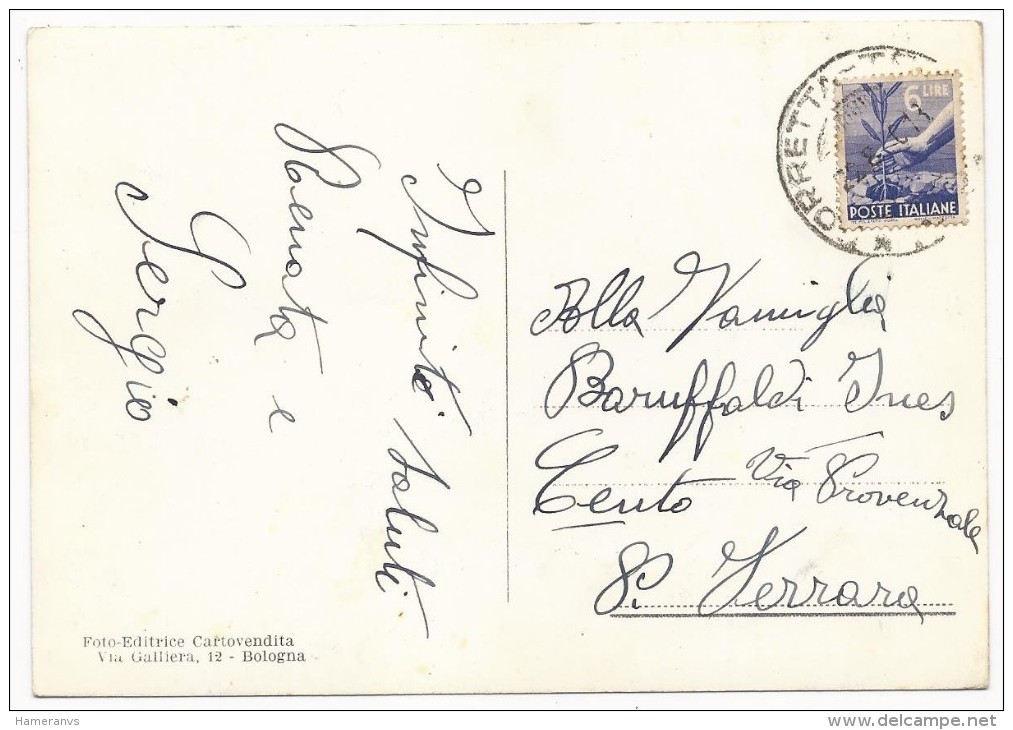 Infiniti saluti
Renata e
Sergio
Foto-Editrice Cartovendita
Via Galliera, 12 - Bologna
PORRETTA
6 LIRE
POSTE ITALIANE
Alla Famiglia
Baruffaldi Ines
Cento Via Provenzale
P. Ferrara
Hameranvs
delcampe.net